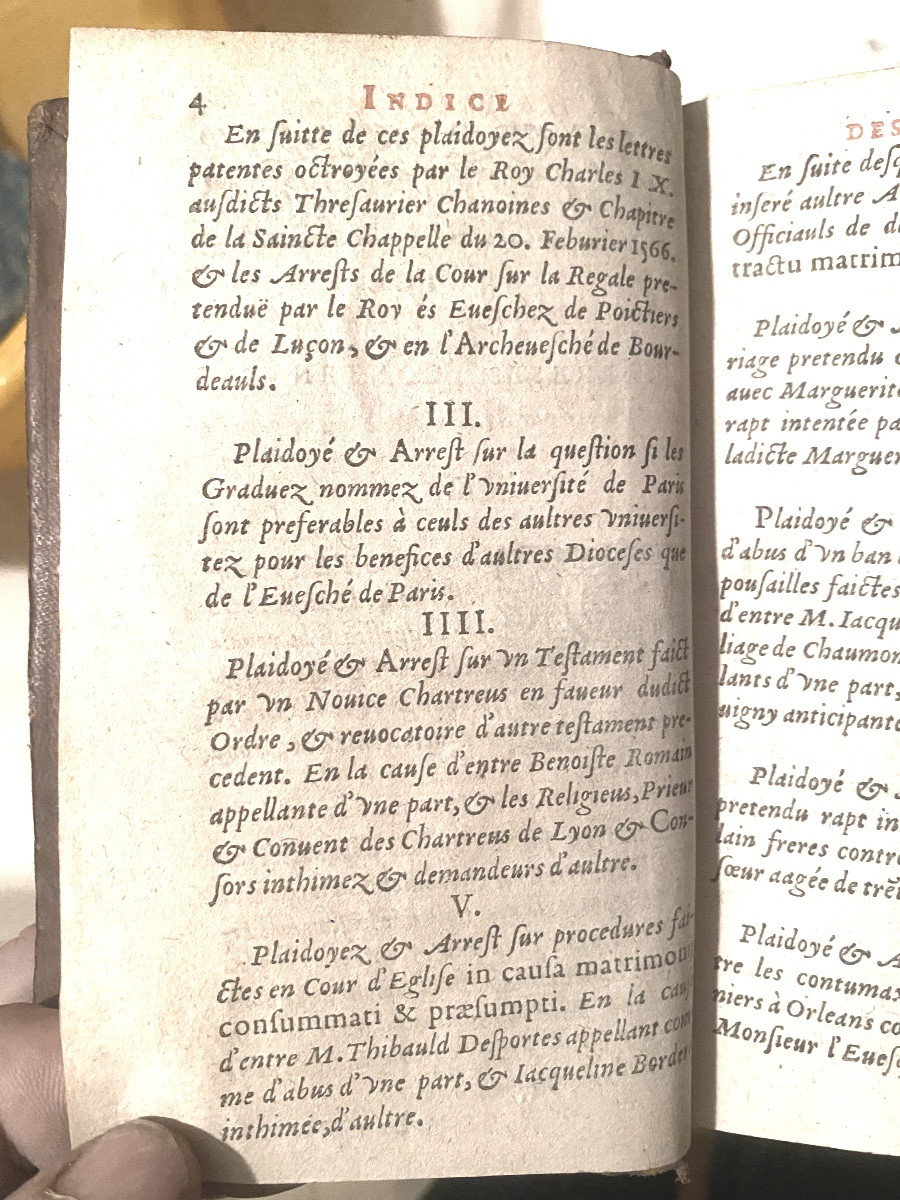 4 INDICE
En ſuitte de ces plaidoyez ſont les lettres
patentes octroyées par le Roy Charles I X.
auſdicts Threſaurier Chanoines & Chapitre
de la Saincte Chappelle du 20. Feburier 1566.
& les Arreſts de la Cour ſur la Regale pre-
tenduë par le Roy és Eueſchez de Poictiers
& de Luçon, & en l'Archeueſché de Bour-
deauls.
III.
Plaidoyé & Arreſt ſur la queſtion ſi les
Graduez nommez de l'vniuerſité de Paris
ſont preferables à ceuls des aultres vniuerſi-
tez pour les benefices d'aultres Dioceſes que
de l'Eueſché de Paris.
IIII.
Plaidoyé & Arreſt ſur vn Teſtament faict
par vn Nouice Chartreus en faueur dudict
Ordre, & reuocatoire d'autre teſtament pre-
cedent. En la cauſe d'entre Benoiſte Romain
appellante d'vne part, & les Religieus, Prieur
& Conuent des Chartreus de Lyon & Con-
ſors inthimez & demandeurs d'aultre.
V.
Plaidoyez & Arreſt ſur procedures fai-
ctes en Cour d'Egliſe in cauſa matrimonij
conſummati & præſumpti. En la cauſe
d'entre M. Thibauld Deſportes appellant com
me d'abus d'vne part, & Iacqueline
inthimée, d'aultre.
DES
En ſuite
inſeré aultre
Officiauls de
tractu
Plaidoyé &
riage pretendu
auec
rapt intentée
ladicte
Plaidoyé &
d'abus d'vn ban
pouſailles faictes
d'entre M.
liage de
lants d'vne part,
anticipante
Plaidoyé &
pretendu rapt
lain freres
ſœur aagée de
Plaidoyé &
tre les
niers à Orleans
Monſieur